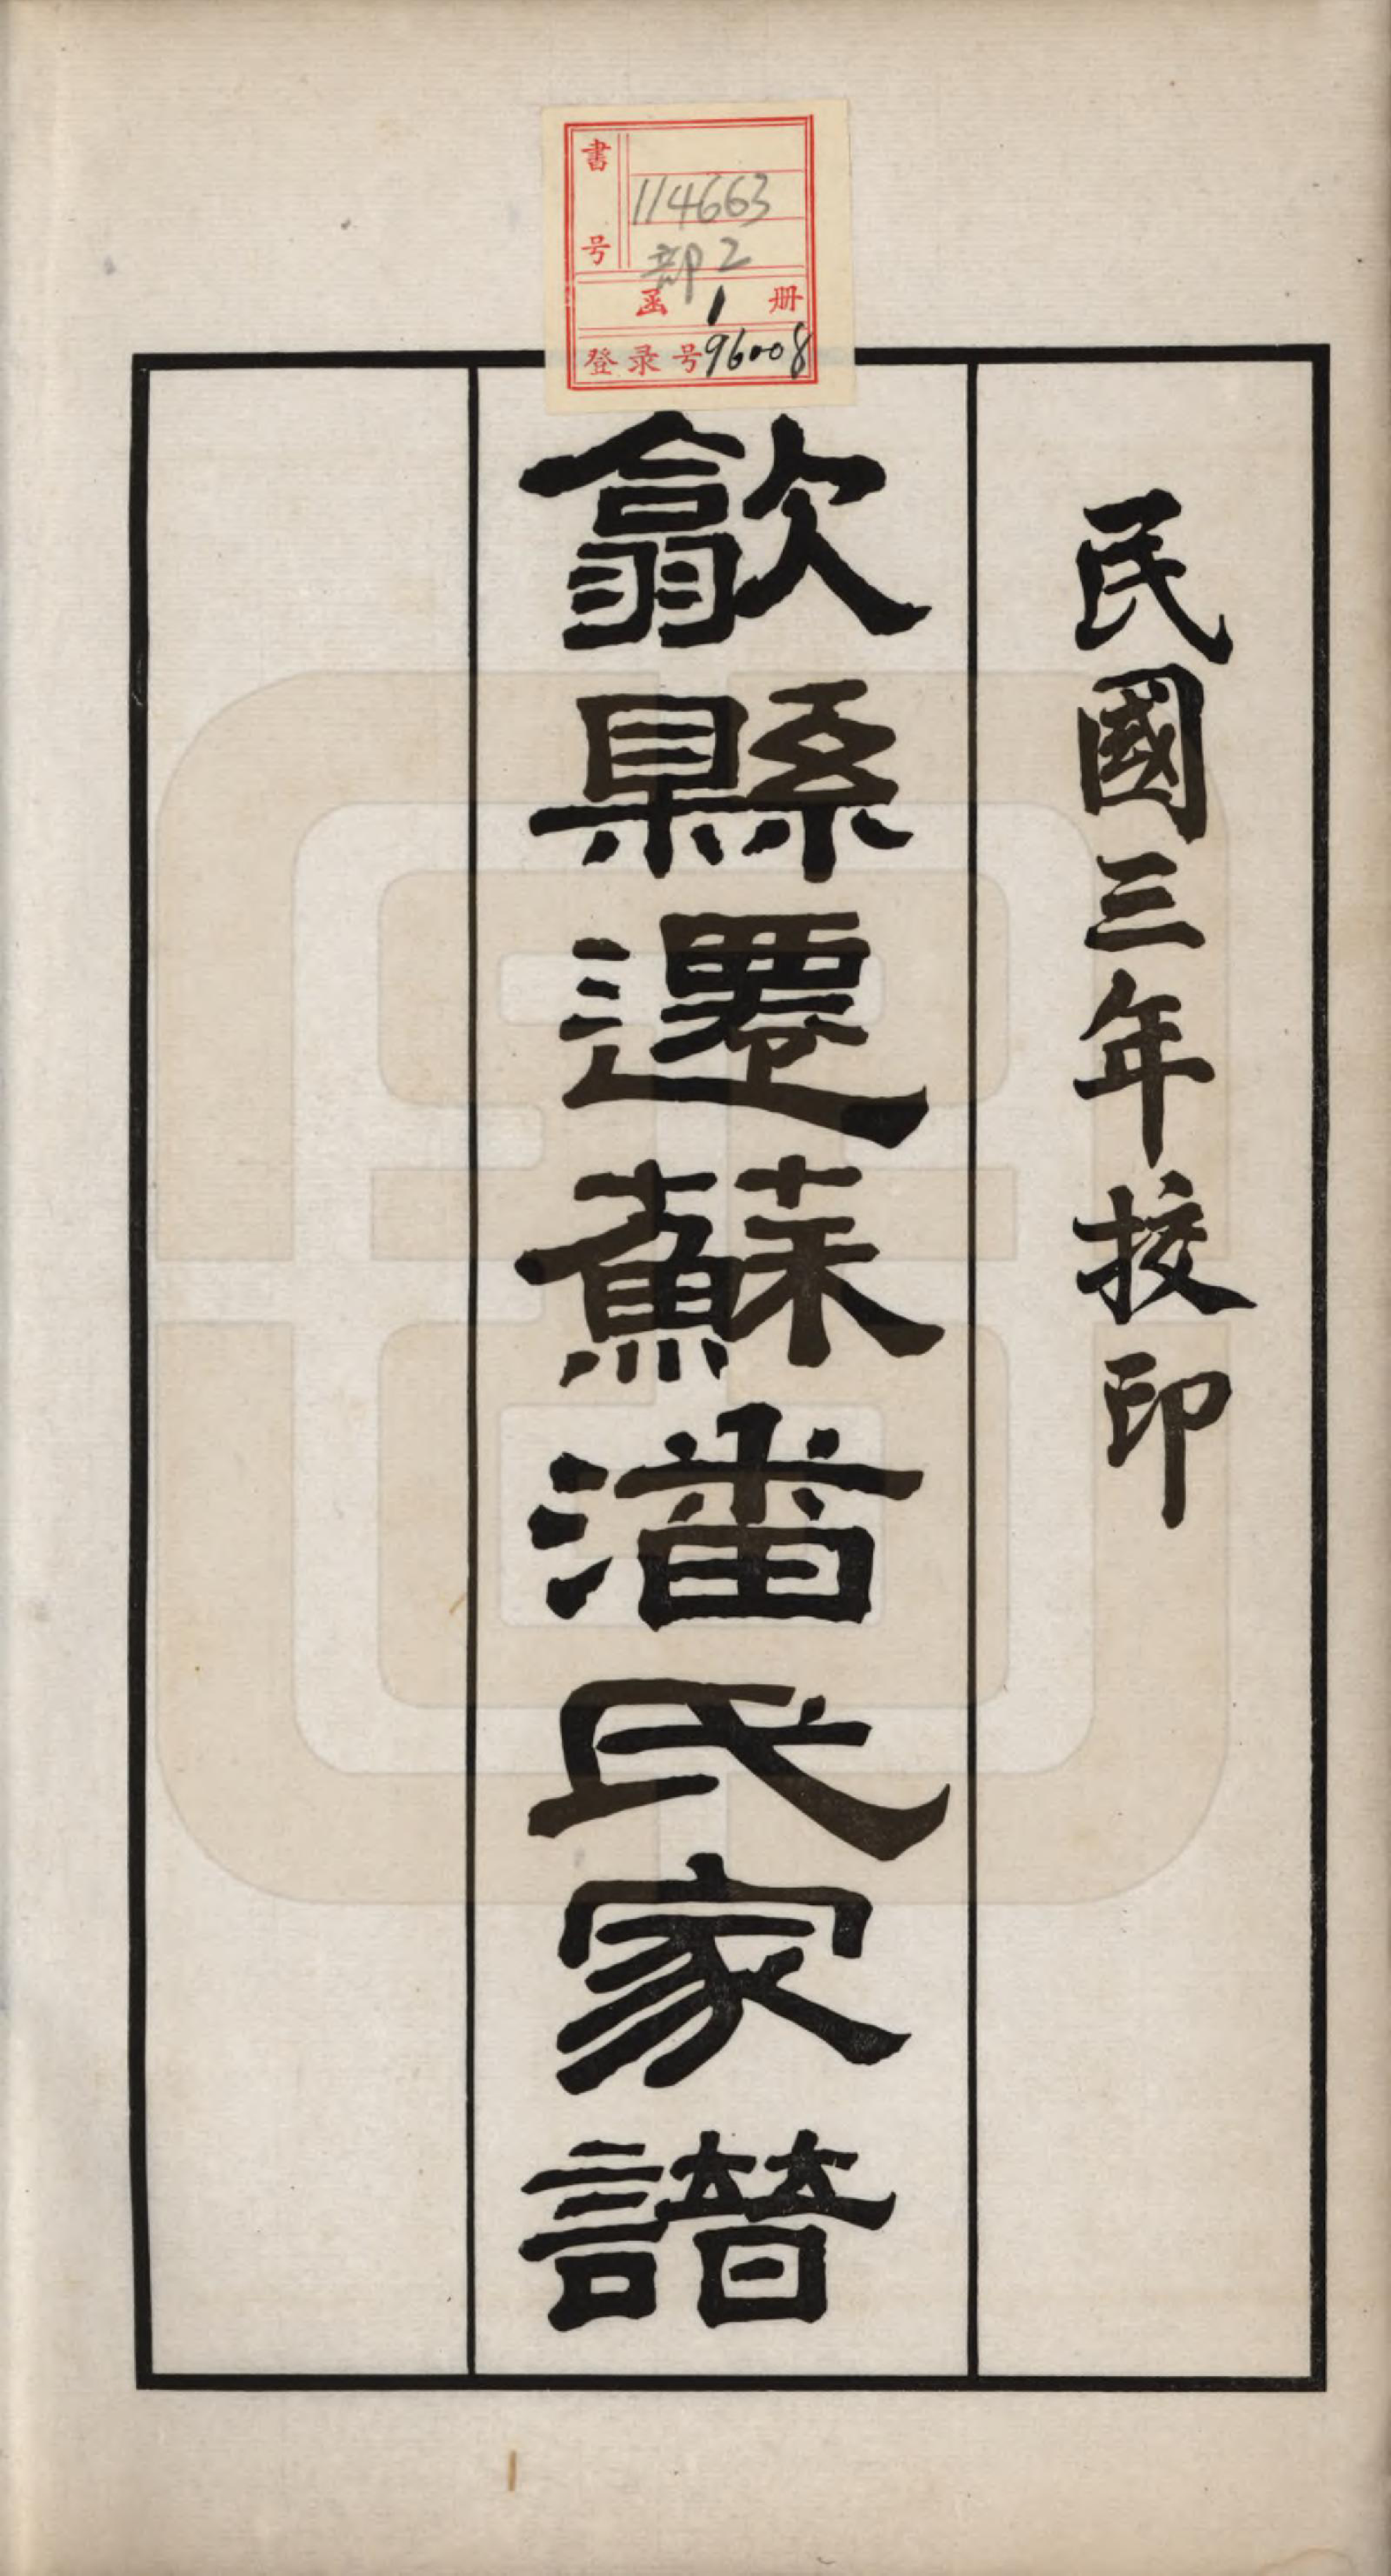 民國三年挍印
歙縣遷蘇潘氏家譜
書号
114663
部2
函 1 册
登录号96008